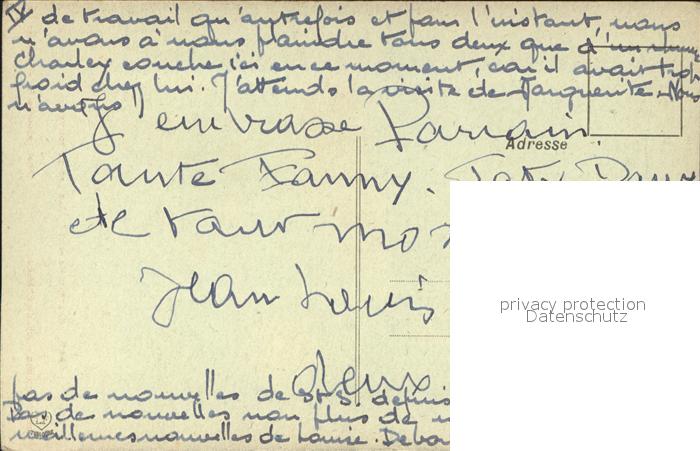 IV de travail qu'autrefois et pour l'instant, nous
n'avons à nous plaindre tous deux que d'un
Charley couche ici en ce moment, car il avait trop
froid chez lui. J'attends la visite de Marguerite. Nous
n'avons
J'embrasse Parrain.
Adresse
Tante Fanny.
et tout mon
Jean Louis
deux
pas de nouvelles de depuis
Pas de nouvelles non plus de
meilleures nouvelles de Louise.
privacy protection
Datenschutz